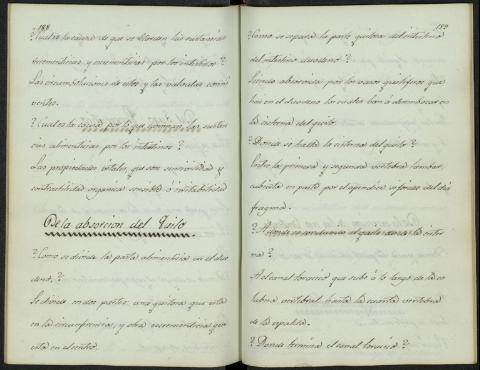 188
¿Cual es la causa de que se detengan las sustancias
excrementicias, y recrementicias por los intestinos?
Las circumboluciones de estos, y las valvulas conni
ventes.
¿Cual es la causa por la que caminan las sustan
cias alimenticias por los intestinos?
Las propiedades vitales, que son sensibilidad y
contractilidad organica sensible é irritabilidad
De la absorcion del Quilo
¿Como se divide la pasta alimenticia en el duo
deno?
Se divide en dos partes, una quilosa que esta
en la circumferencia, y otra excrementicia que
esta en el centro.
189
¿Como se separa la parte quilosa del intestino
del intestino duodeno?
Siendo absorvida por los vasos quiliferos que
hai en el duodeno los cuales ban á desembocar en
la cisterna del quilo.
¿Donde se halla la cisterna del quilo?
Entre la primera y segunda vertebra lumbar,
cubierta en parte por el apendice inferior del dia
fragma.
¿A donde es conducido el quilo desde la cister
na?
Al canal toracico que sube á lo largo de la co
lumna vertebral hasta la cuarta vertebra
de la espalda.
¿Donde termina el canal toracico?